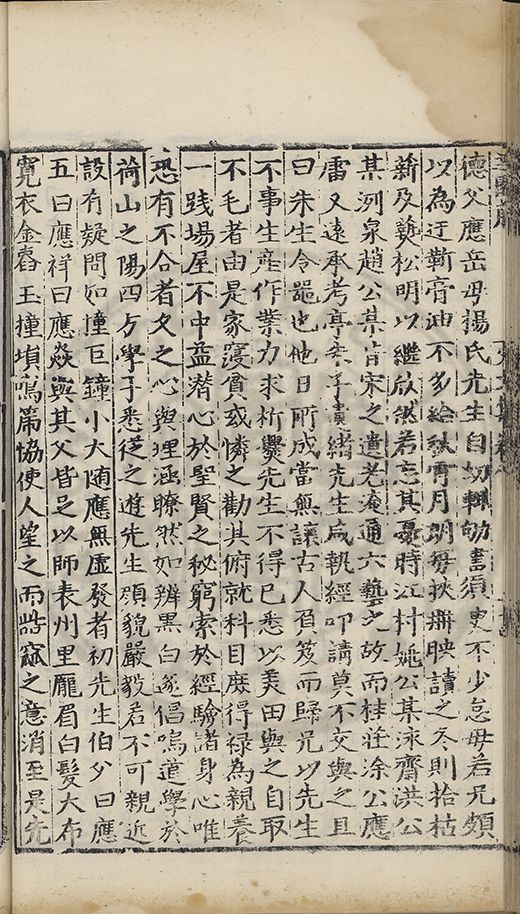 德父應岳母揚氏先生自幼輒劬書須臾不少怠母若兄頗
以為迂靳膏油不多給秋宵月明每挾冊映讀之冬則拾枯
薪及爇松明以繼欣然若忘其憂時江村姚公某深齋洪公
某洌泉趙公某皆宋之遺老淹通六藝之故而桂莊涂公應
雷又遠承考亭緒先生咸執經叩請莫不交與之且
曰朱生令器也他日所成當無讓古人負笈而歸兄以先生
不事生產作業力求析爨先生不得已悉以美田與之自取
不毛者由是家寖貧或憐之勸其俯就科目庶得祿為親養
一踐場屋不中益潛心於聖賢之秘窮索於經驗諸身心唯
恐有不合者久之心與理涵瞭然如辨黑白遂倡鳴道學於
荷山之陽四方學子悉從之遊先生顏貌嚴毅若不可親近
設有疑問如撞巨鐘小大随應無虛發者初先生伯父曰應
五曰應祥曰應焱與其父皆足以師表州里龐眉白髮大布
寬衣金舂玉撞塤鳴篪協使人望之而呰窳之意消至是先